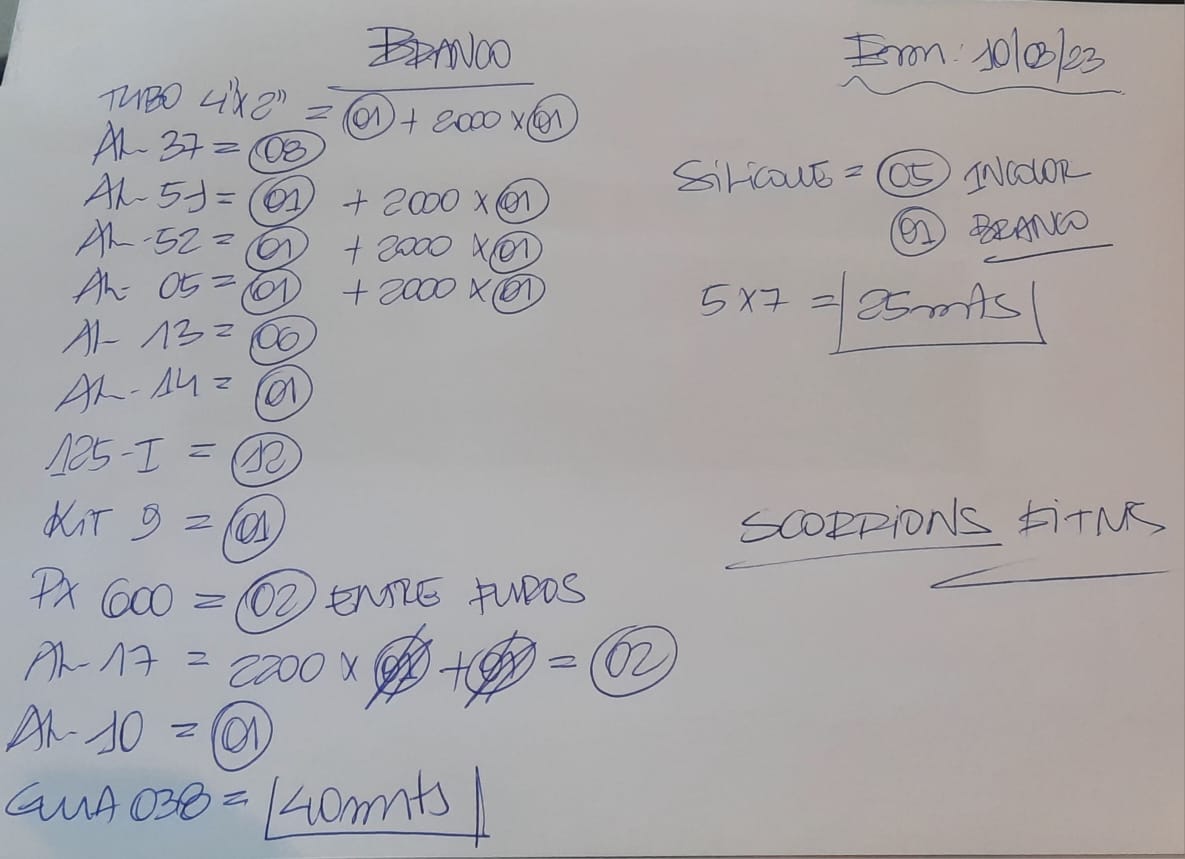 BRANCO
TUBO 4"x2" = 01 + 2000 x 01
AL-37 = 08
AL-51 = 01 + 2000 x 01
AL-52 = 01 + 2000 x 01
AL-05 = 01 + 2000 x 01
AL-13 = 06
AL-14 = 01
125-I = 12
KIT 9 = 01
PX 600 = 02 ENTRE FUROS
AL-17 = 2200 x 01 + 01 = 02
AL-10 = 01
GUIA 038 = 40mts
10/03/23
SILICONE = 05 INCOLOR
01 BRANCO
5x7 = 25mts
SCORPIONS